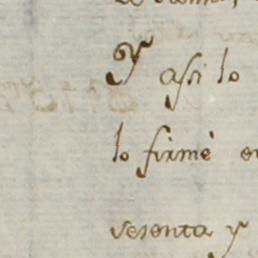 Y assi lo
lo firmè
sesenta y